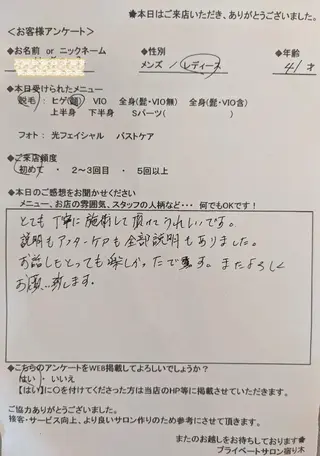 ★本日はご来店いただき、ありがとうございました。
＜お客様アンケート＞
◆お名前 or ニックネーム ◆性別 ◆年齢
メンズ / レディース 41才
◆本日受けられたメニュー
脱毛：ヒゲ(顔) VIO 全身(髭・VIO無) 全身(髭・VIO含)
上半身 下半身 Sパーツ( )
フォト：光フェイシャル バストケア
◆ご来店頻度
初めて ・ 2～3回目 ・ 5回以上
◆本日のご感想をお聞かせください
メニュー、お店の雰囲気、スタッフの人柄など・・・ 何でもOKです！
とても丁寧に施術して頂けてうれしいです。
説明もアフターケアも全部説明もありました。
お話しもとっても楽しかったです。またよろしく
お願い致します。
◆こちらのアンケートをWEB掲載してよろしいでしょうか？
はい ・ いいえ
【はい】に○を付けてくださった方は当店のHP等に掲載させていただきます。
ご協力ありがとうございました。
接客・サービス向上、より良いサロン作りのため参考にさせて頂きます。
またのお越しをお待ちしております★
プライベートサロン宿り木